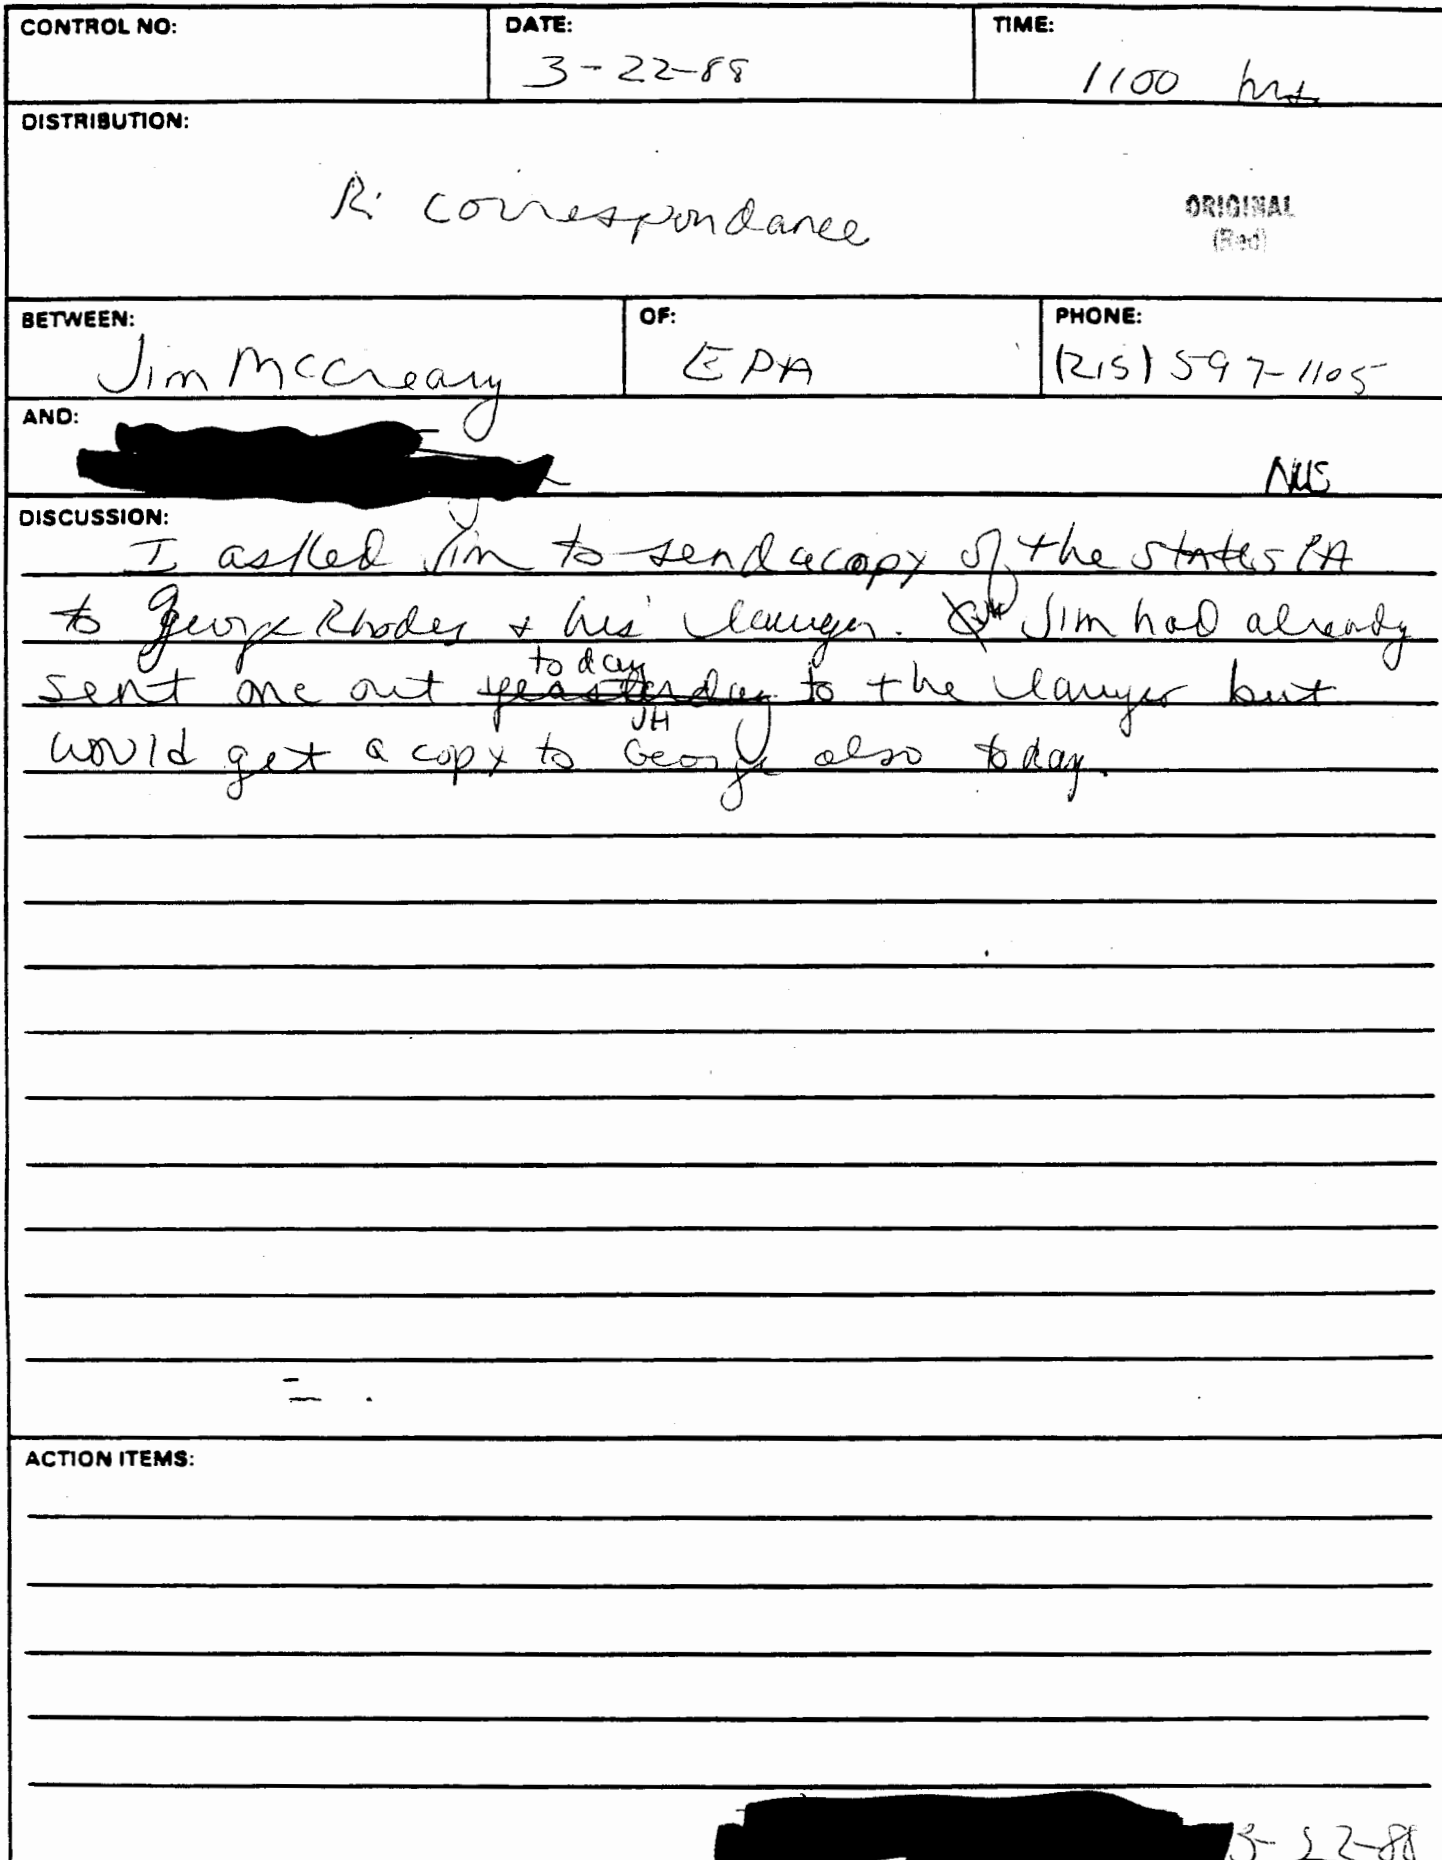 CONTROL NO: DATE: TIME:
3-22-88 1100 hrs
DISTRIBUTION:
R: correspondance
ORIGINAL
(Red)
BETWEEN: OF: PHONE:
Jim McCreary EPA (215) 597-1105
AND:
NUS
DISCUSSION:
I asked Jim to send a copy of the states PA
to George Rhodes & his lawyer. Jim had already
today
sent one out yeasterday to the lawyer but
JH
would get a copy to George also today.
ACTION ITEMS:
3-22-88